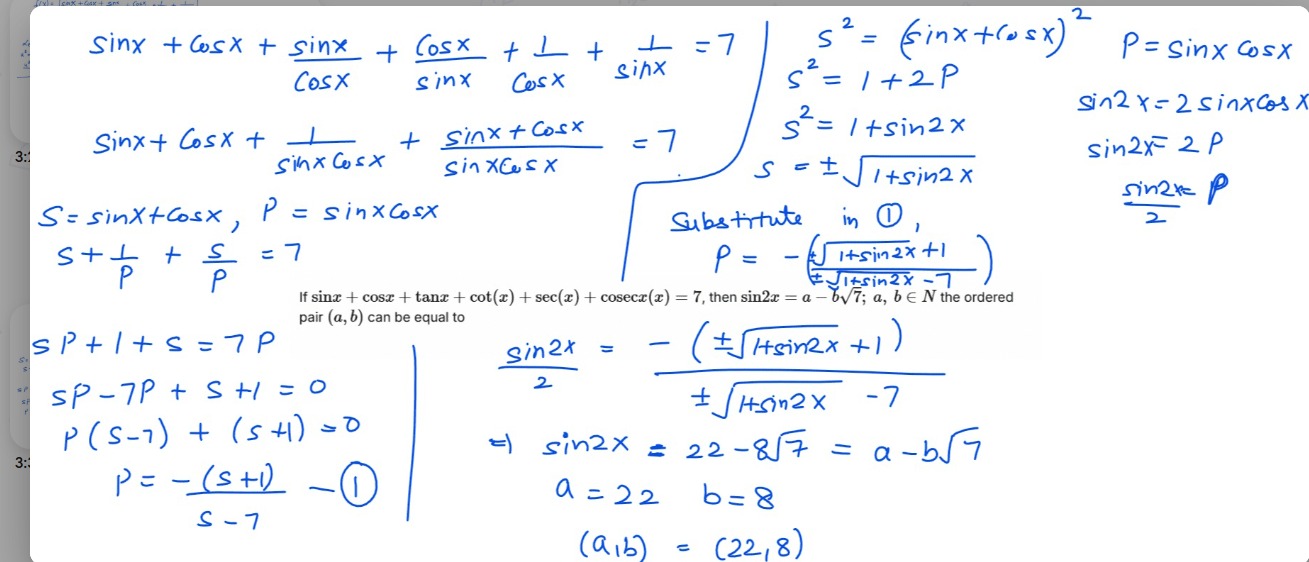 sinx + cosx + sinx/cosx + cosx/sinx + 1/cosx + 1/sinx = 7
sinx + cosx + 1/(sinx cosx) + (sinx + cosx)/(sinx cosx) = 7
S = sinx + cosx, P = sinx cosx
S + 1/P + S/P = 7
S² = (sinx + cosx)²
S² = 1 + 2P
S² = 1 + sin2x
S = ±√(1+sin2x)
P = sinx cosx
sin2x = 2 sinx cosx
sin2x = 2P
sin2x/2 = P
Substitute in ①,
P = -((±√(1+sin2x) + 1)/(±√(1+sin2x) - 7))
If sinx + cosx + tanx + cot(x) + sec(x) + cosecx(x) = 7, then sin2x = a − b√7; a, b ∈ N the ordered
pair (a, b) can be equal to
SP + 1 + S = 7P
SP - 7P + S + 1 = 0
P(S-7) + (S+1) = 0
P = -(S+1)/(S-7) - ①
sin2x/2 = -(±√(1+sin2x) + 1)/(±√(1+sin2x) - 7)
⇒ sin2x = 22 - 8√7 = a - b√7
a = 22 b = 8
(a,b) = (22,8)
3:
3: